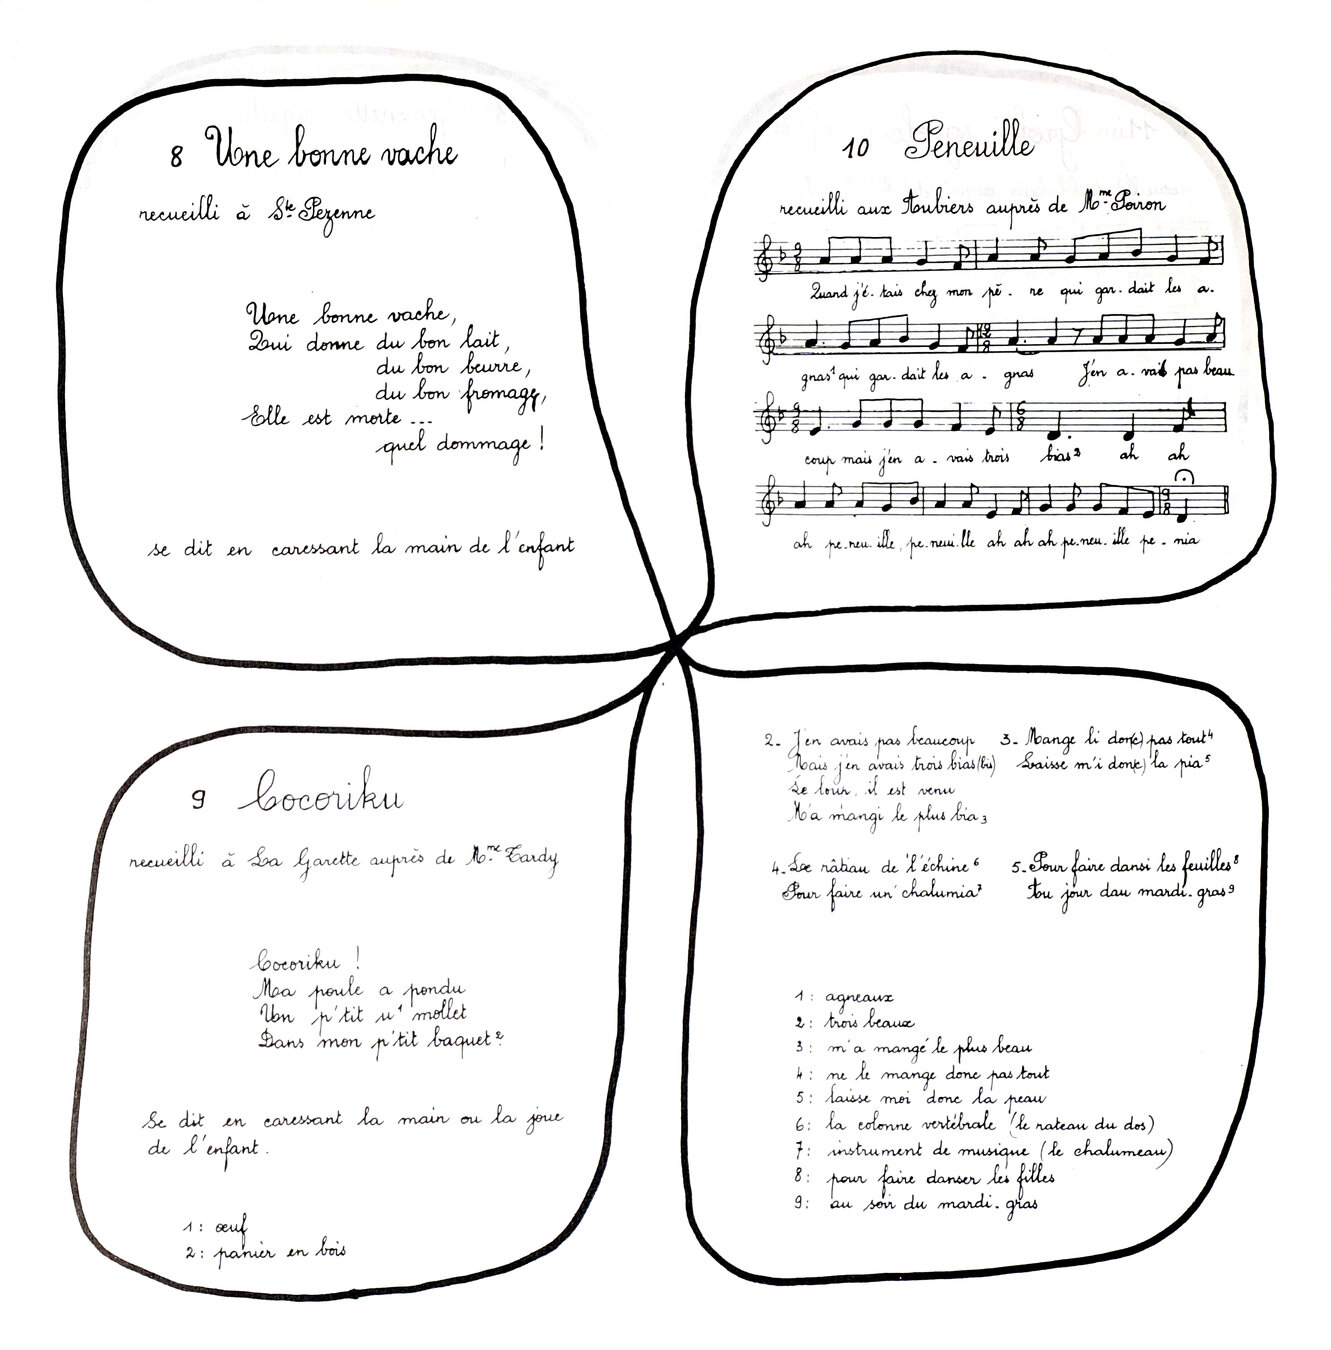 8 Une bonne vache
recueilli à Ste Pezenne
Une bonne vache,
Qui donne du bon lait,
du bon beurre,
du bon fromage,
Elle est morte ...
quel dommage !
se dit en caressant la main de l'enfant
9 Cocoriku
recueilli à La Garette auprès de Mme Tardy
Cocoriku !
Ma poule a pondu
Un p'tit u¹ mollet
Dans mon p'tit baquet²
Se dit en caressant la main ou la joue
de l'enfant.
1 : œuf
2 : panier en bois
10 Peneuille
recueilli aux Aubiers auprès de Mme Poiron
Quand j'é-tais chez mon pè-re qui gar-dait les a-
gnas¹ qui gar-dait les a-gnas J'en a-vais pas beau
coup mais j'en a-vais trois bias² ah ah
ah pe-neu-ille, pe-neui-lle ah ah ah pe-neu-ille pe-nia
2- J'en avais pas beaucoup
Mais j'en avais trois bias (bis)
Le loup, il est venu
M'a mangi le plus bia 3
3- Mange li don(c) pas tout⁴
Laisse m'i don(c) la pia⁵
4- Le râtiau de l'échine⁶
Pour faire un chalumia⁷
5- Pour faire dansi les feuilles⁸
Tou jour dau mardi-gras⁹
1 : agneaux
2 : trois beaux
3 : m'a mangé le plus beau
4 : ne le mange donc pas tout
5 : laisse moi donc la peau
6 : la colonne vertébrale (le rateau du dos)
7 : instrument de musique (le chalumeau)
8 : pour faire danser les filles
9 : au soir du mardi-gras